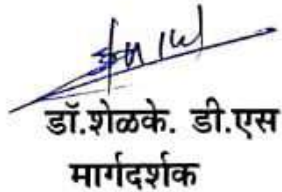 डॉ.शेळके. डी.एस
मार्गदर्शक